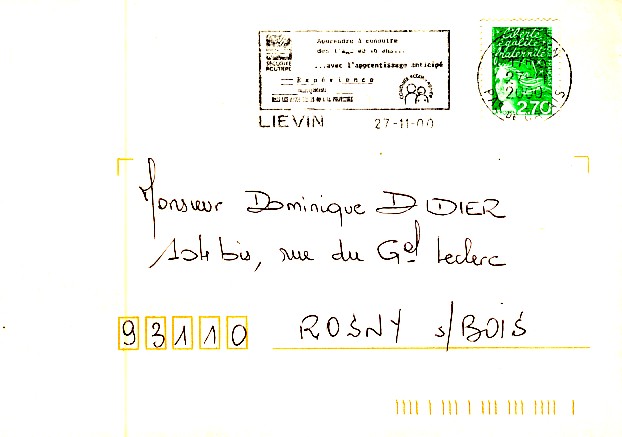 Apprendre à conduire
dès l'âge de 16 ans...
...avec l'apprentissage anticipé
Expérience
LIEVIN 27-11-00
Liberté
égalité
fraternité
27
2000
2,70
Monsieur Dominique DIDIER
104 bis, rue du Gal Leclerc
93110 ROSNY s/BOIS